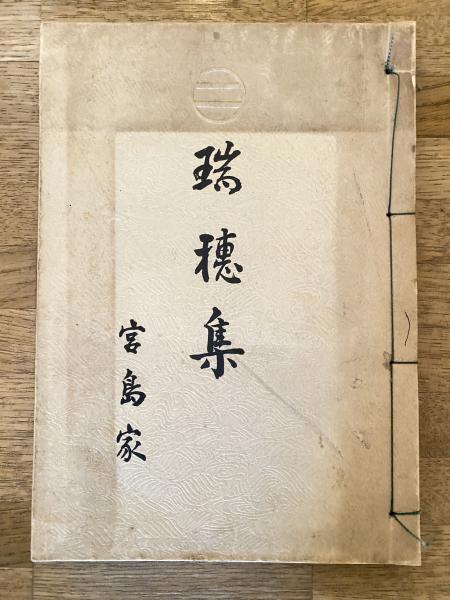 瑞穂集
宮島家